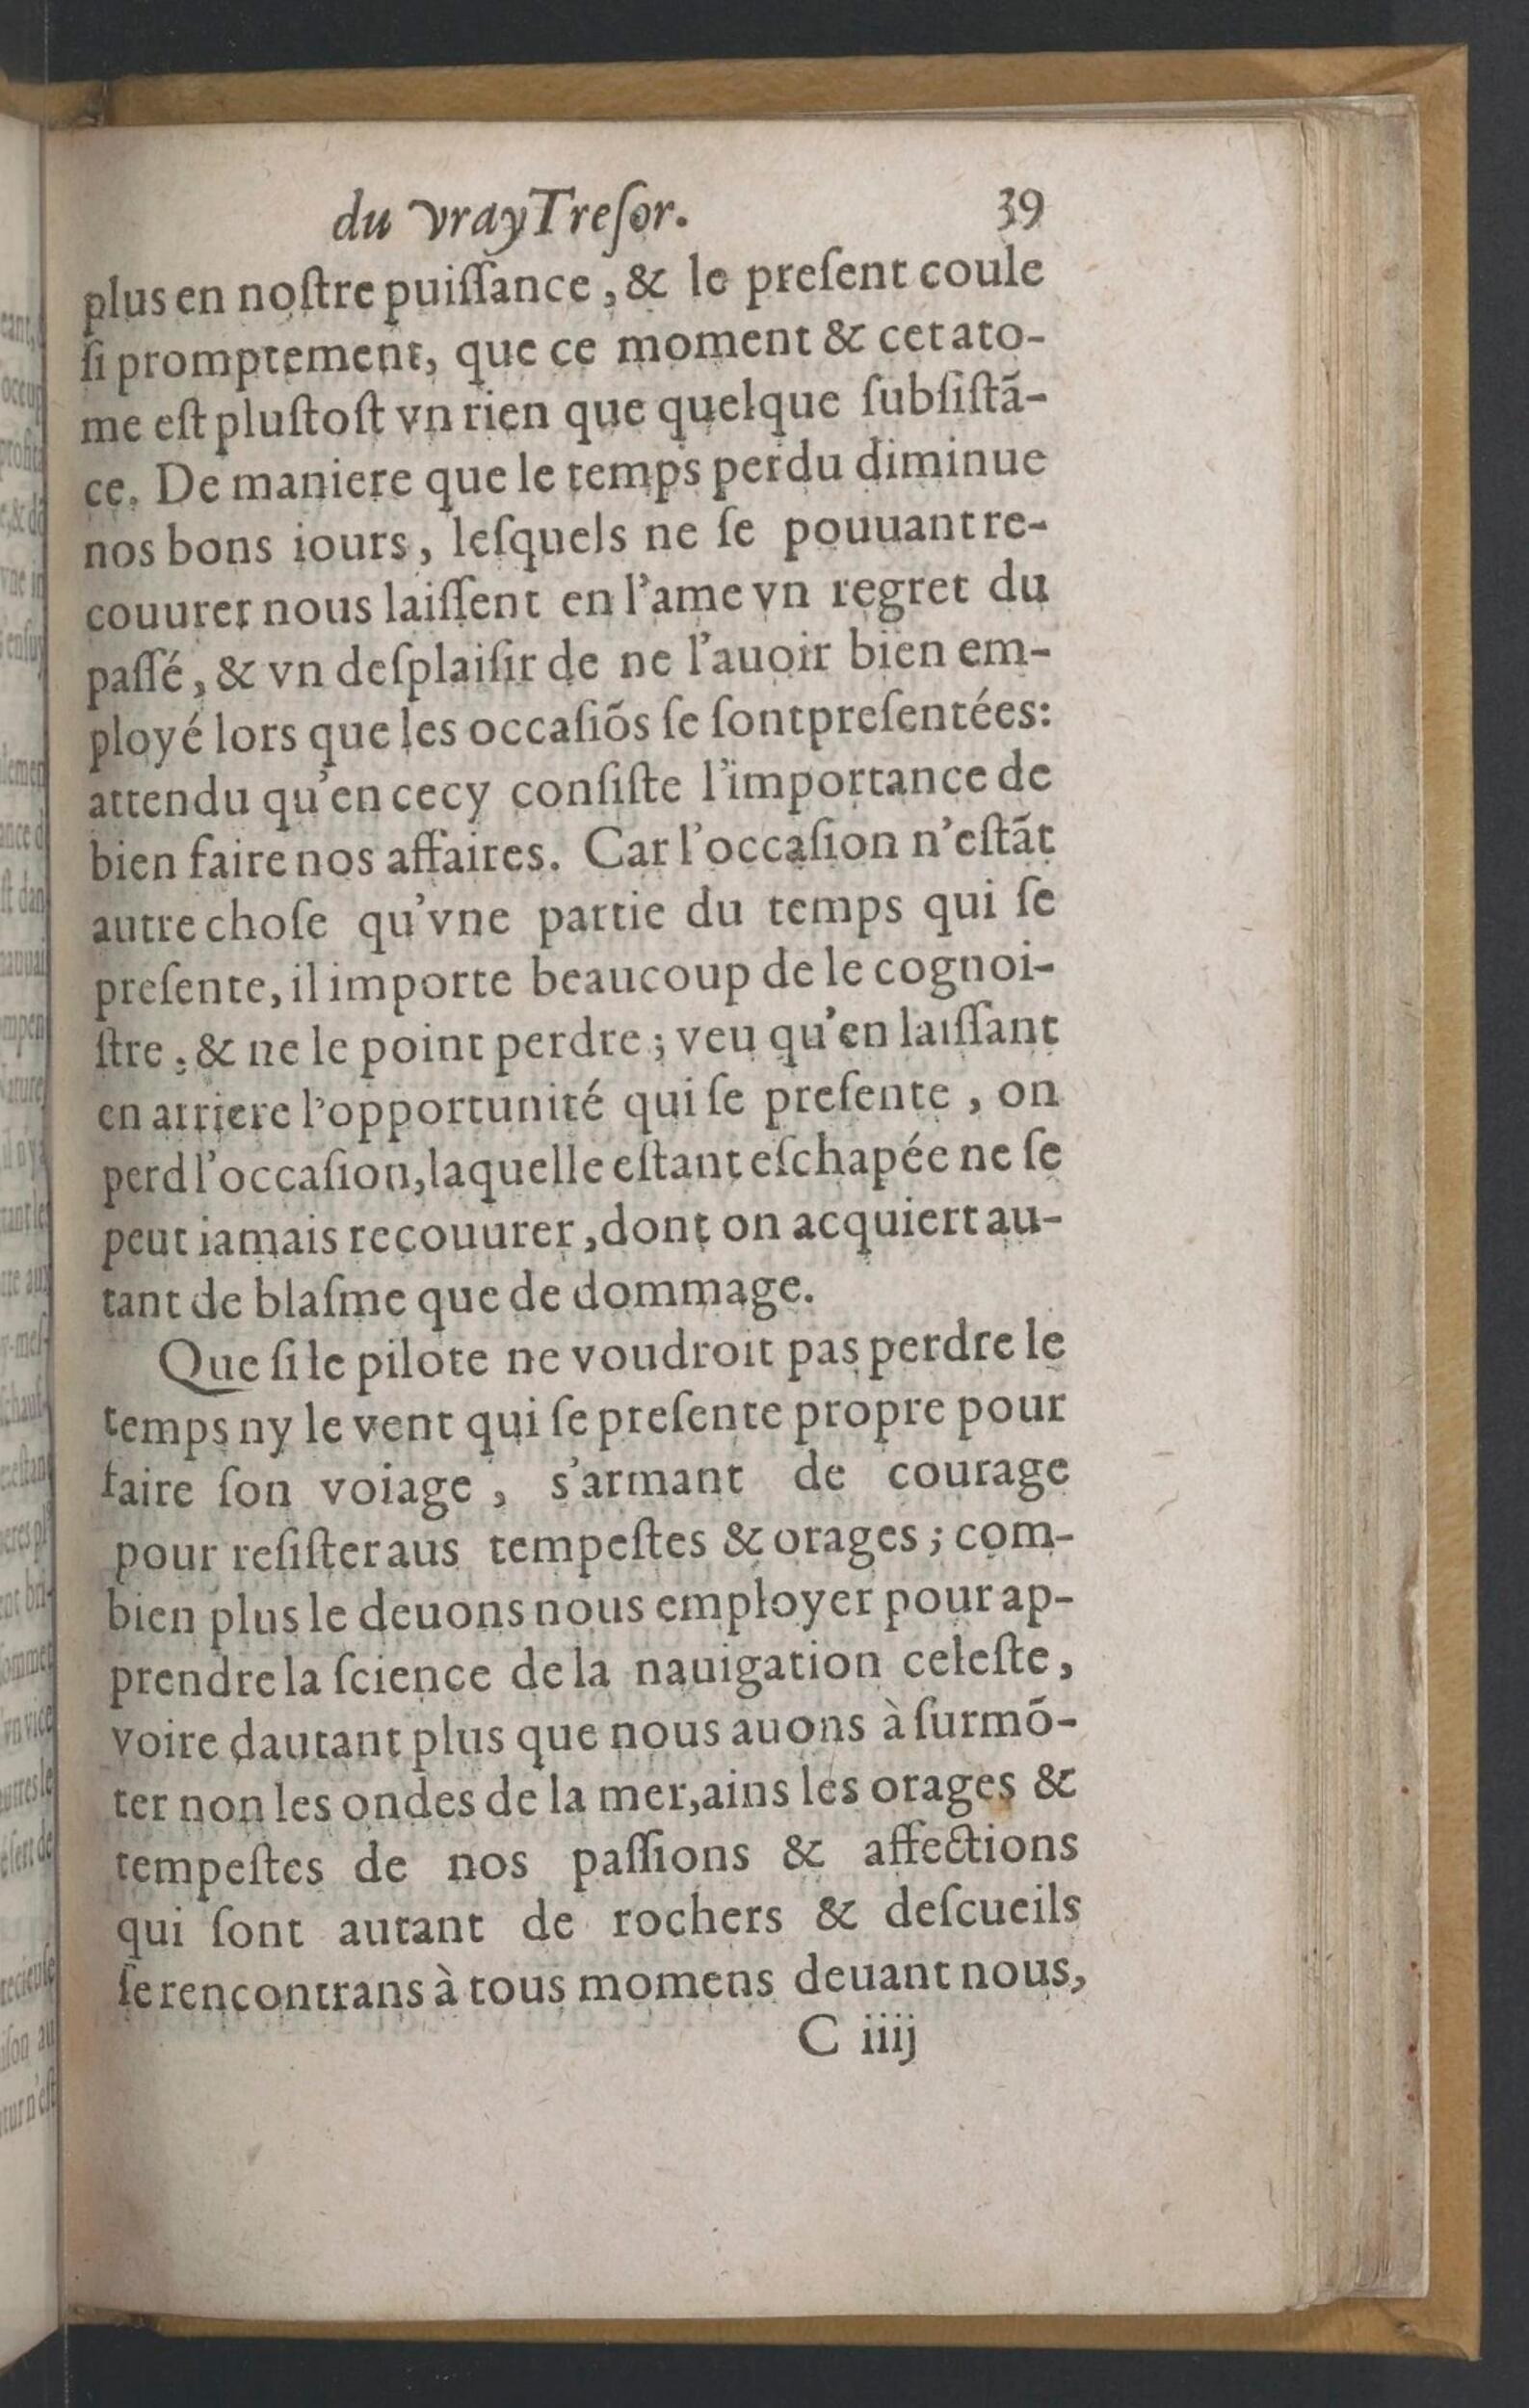 du vray Treſor. 39
plus en noſtre puiſſance, & le preſent coule
ſi promptement, que ce moment & cet ato-
me eſt pluſtoſt vn rien que quelque ſubſiſtã-
ce. De maniere que le temps perdu diminue
nos bons iours, leſquels ne ſe pouuant re-
couurer nous laiſſent en l'ame vn regret du
paſſé, & vn deſplaiſir de ne l'auoir bien em-
ployé lors que les occaſiõs ſe ſont preſentées:
attendu qu'en cecy conſiſte l'importance de
bien faire nos affaires. Car l'occaſion n'eſtãt
autre choſe qu'vne partie du temps qui ſe
preſente, il importe beaucoup de le cognoi-
ſtre, & ne le point perdre; veu qu'en laiſſant
en arriere l'opportunité qui ſe preſente, on
perd l'occaſion, laquelle eſtant eſchapée ne ſe
peut iamais recouurer, dont on acquiert au-
tant de blaſme que de dommage.
Que ſi le pilote ne voudroit pas perdre le
temps ny le vent qui ſe preſente propre pour
faire ſon voiage, s'armant de courage
pour reſiſter aus tempeſtes & orages; com-
bien plus le deuons nous employer pour ap-
prendre la ſcience de la nauigation celeſte,
voire dautant plus que nous auons à ſurmõ-
ter non les ondes de la mer, ains les orages &
tempeſtes de nos paſſions & affections
qui ſont autant de rochers & deſcueils
ſe rencontrans à tous momens deuant nous,
C iiij